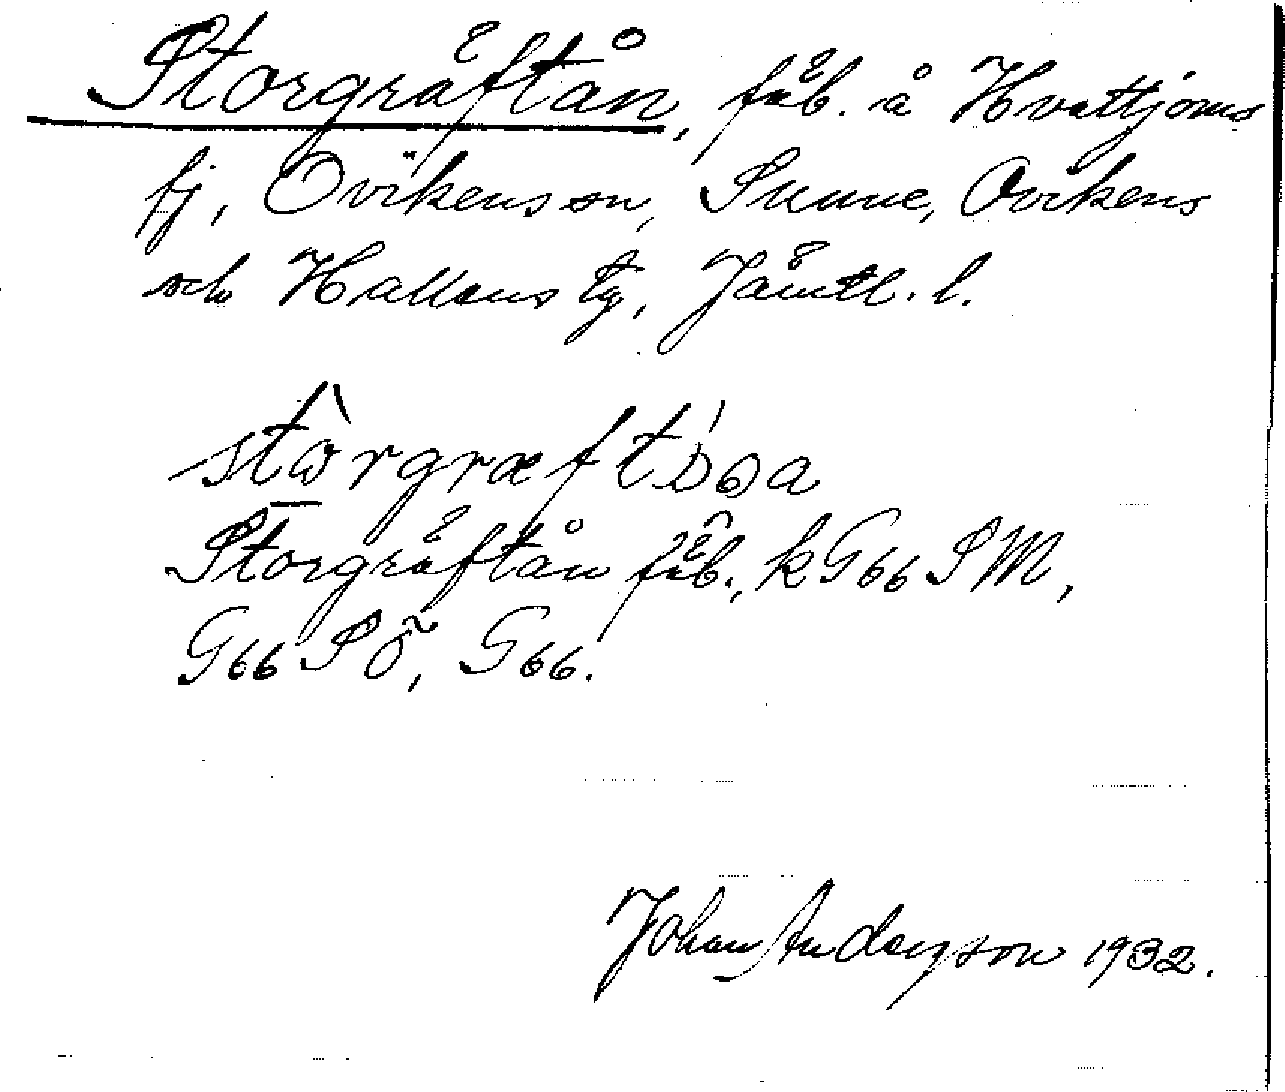 Storgräftån, fäb. å Hvattjoms
fj, Ovikens sn, Sunne, Ovikens
och Hallens tg, Jämtl. l.
storgræftöoa
Storgräftån fäb., k G66 SM,
G66 SÖ, G66.
Johan Anderson 1932.